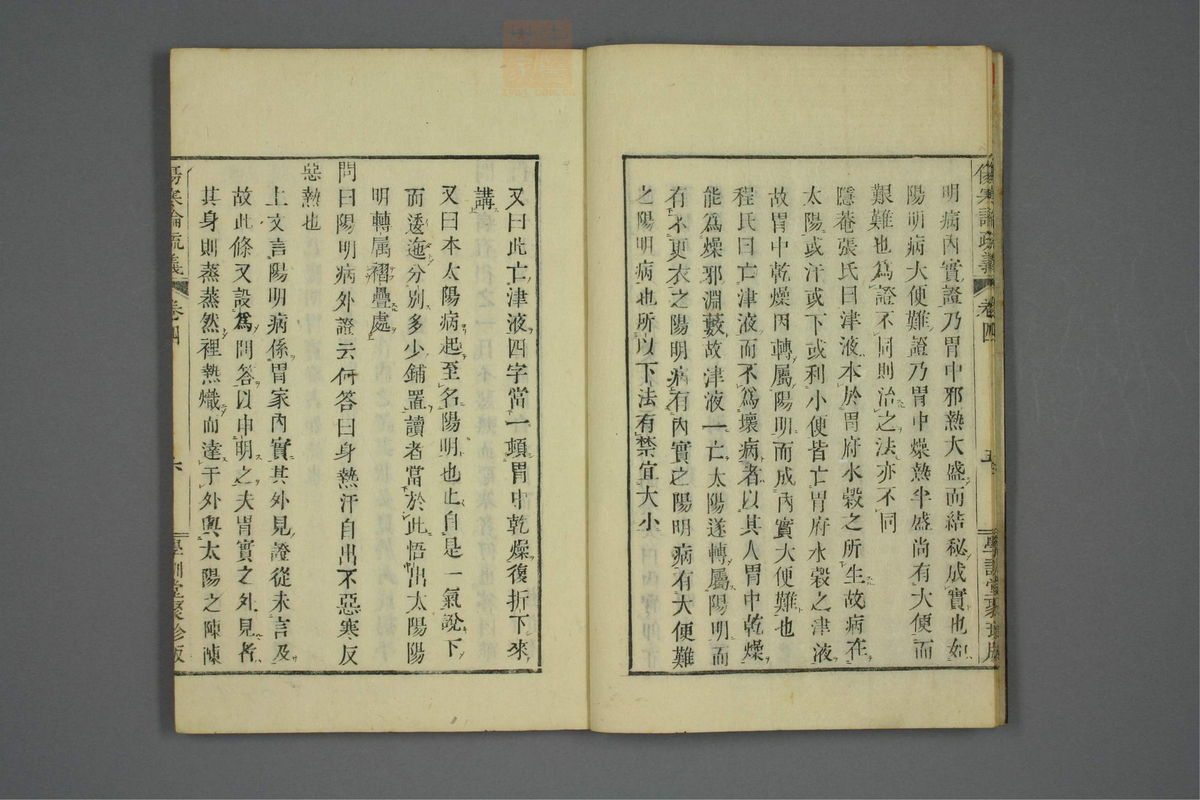 傷寒論疏義 卷四 五 學訓堂聚珍版
明病內實證乃胃中邪熱大盛而結秘成實也如
陽明病大便難證乃胃中燥熱半盛尚有大便而
艱難也為證不同則治之法亦不同
隱菴張氏曰津液本於胃府水穀之所生故病在
太陽或汗或下或利小便皆亡胃府水穀之津液
故胃中乾燥因轉屬陽明而成內實大便難也
程氏曰亡津液而不為壞病者以其人胃中乾燥
能為燥邪淵藪故津液一亡太陽遂轉屬陽明而
有不更衣之陽明病有內實之陽明病有大便難
之陽明病也所以下法有禁宜大小
又曰此亡津液四字當一頓胃中乾燥復折下來
講
又曰本太陽病起至名陽明也止自是一氣說下
而逶迤分別多少鋪置讀者當於此悟出太陽陽
明轉屬褶疊處
問曰陽明病外證云何答曰身熱汗自出不惡寒反
惡熱也
上文言陽明病係胃家內實其外見證從未言及
故此條又設為問答以申明之夫胃實之外見者
其身則蒸蒸然裡熱熾而達于外與太陽之陣陣
傷寒論疏義 卷四 六 學訓堂聚珍版